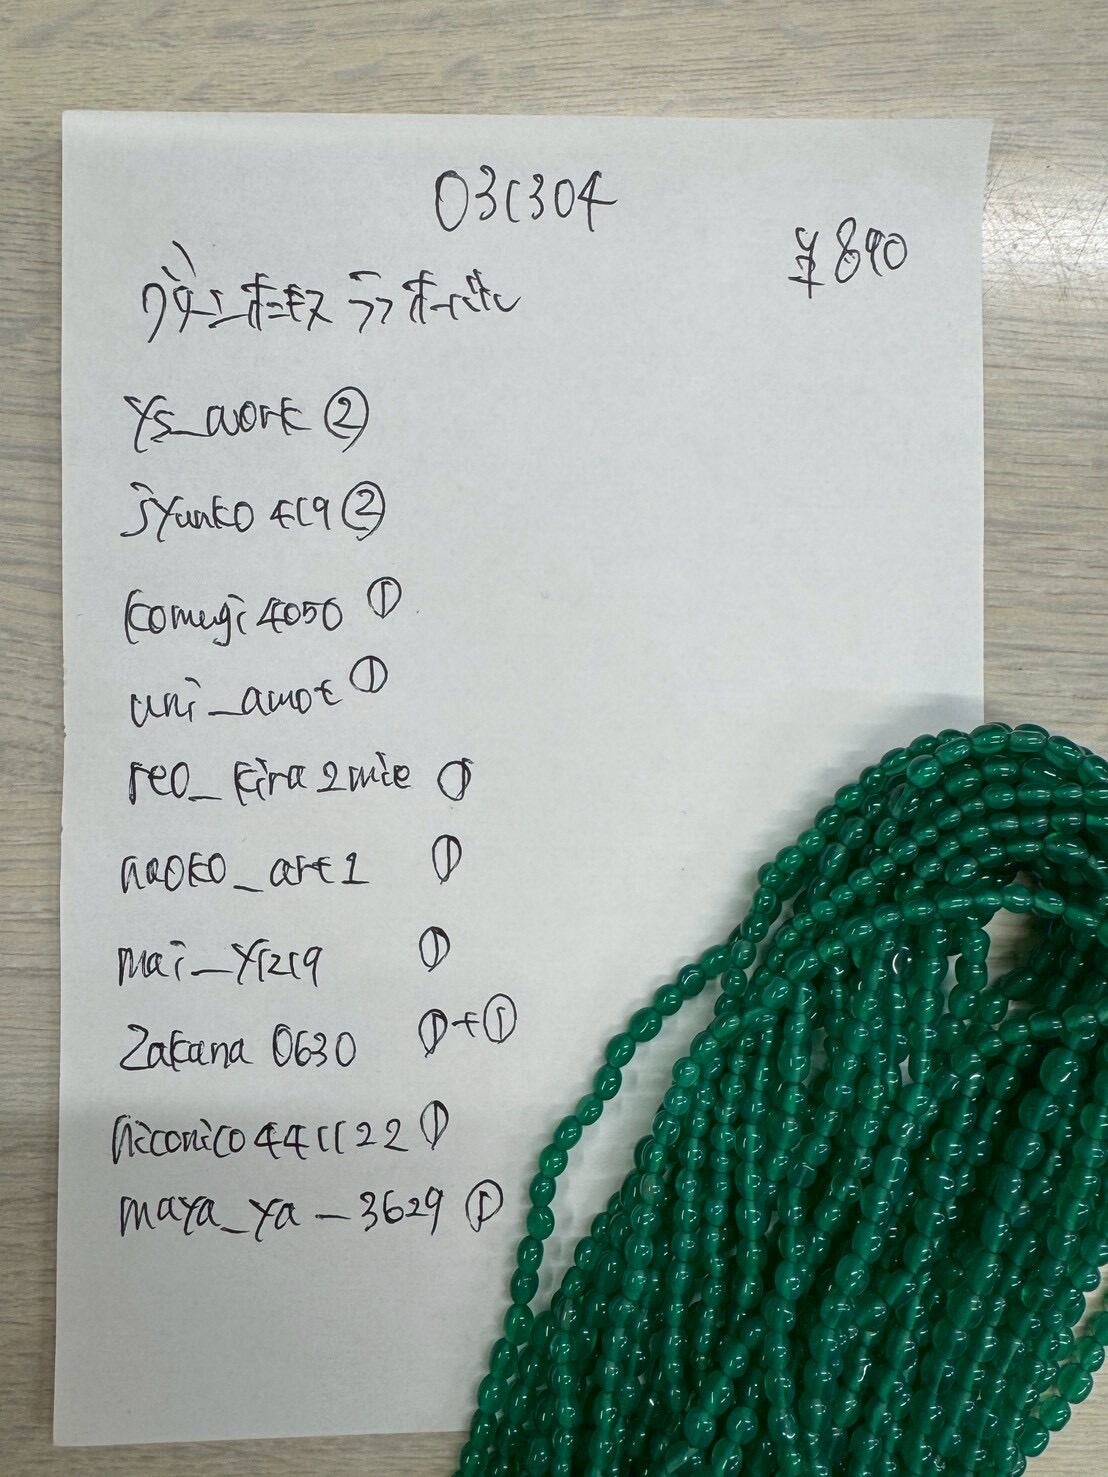 031304
¥890
ys_work ②
jyunko 419 ②
komugi 4050 ①
uni_amot ①
reo_kira2mie ①
naoko_art1 ①
mai_y1219 ①
Zakana 0630 ①+①
niconico441122 ①
maya_ya_3629 ①